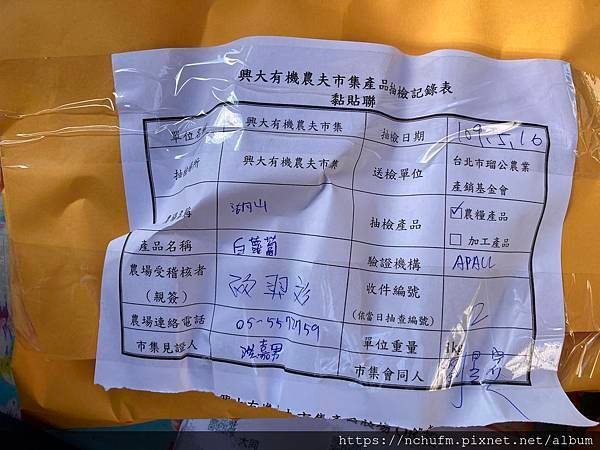 興大有機農夫市集產品抽檢記錄表
黏貼聯
單位名 興大有機農夫市集 抽檢日期 109.5.16
抽檢場所 興大有機農夫市集 送檢單位 台北市瑠公農業
產銷基金會
湖山 抽檢產品 ☑農糧產品
☐加工產品
產品名稱 白蘿蔔 驗證機構 APALL
農場受稽核者
(親簽) 收件編號
(依當日抽查編號) 2
農場連絡電話 05-5572759 單位重量 1kg
市集見證人 嘉男 市集會同人
興大有機農夫市集產品抽檢記錄表
大同
https://nchufm.pixnet.net/album